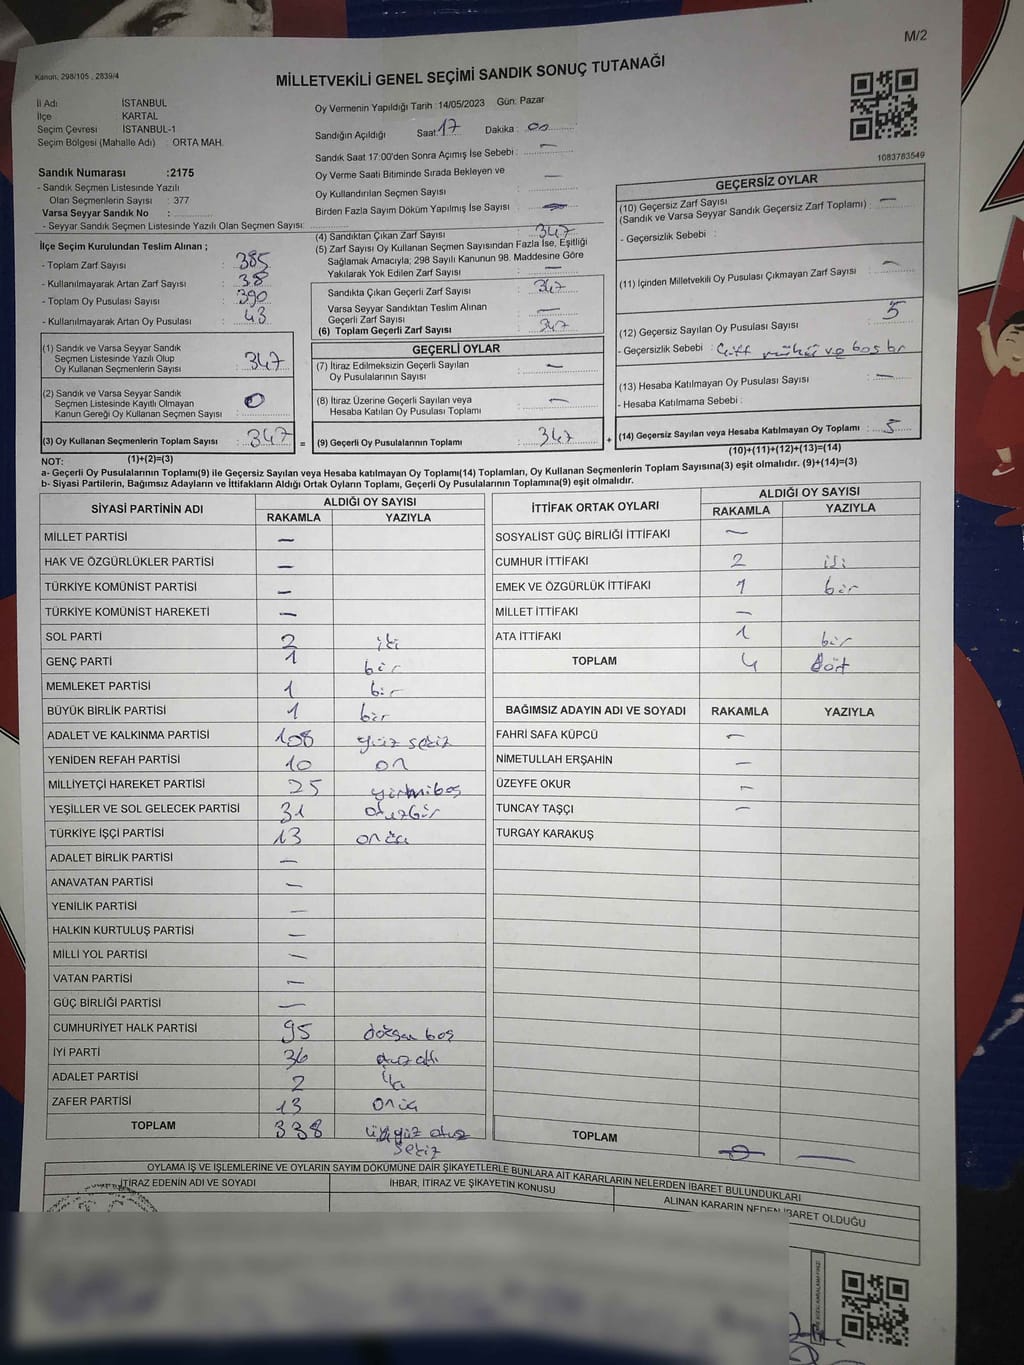 M/2
Kanun, 298/105 , 2839/4
MİLLETVEKİLİ GENEL SEÇİMİ SANDIK SONUÇ TUTANAĞI
İl Adı İSTANBUL
İlçe KARTAL
Seçim Çevresi İSTANBUL-1
Seçim Bölgesi (Mahalle Adı) : ORTA MAH.
Sandık Numarası :2175
- Sandık Seçmen Listesinde Yazılı
Olan Seçmenlerin Sayısı : 377
Varsa Seyyar Sandık No :
- Seyyar Sandık Seçmen Listesinde Yazılı Olan Seçmen Sayısı:
Oy Vermenin Yapıldığı Tarih : 14/05/2023 Gün: Pazar
Sandığın Açıldığı Saat 17 Dakika : 00
Sandık Saat 17:00'den Sonra Açımış İse Sebebi : —
Oy Verme Saati Bitiminde Sırada Bekleyen ve
Oy Kullandırılan Seçmen Sayısı : —
Birden Fazla Sayım Döküm Yapılmış İse Sayısı : —
1083783549
İlçe Seçim Kurulundan Teslim Alınan ;
- Toplam Zarf Sayısı : 385
- Kullanılmayarak Artan Zarf Sayısı : 38
- Toplam Oy Pusulası Sayısı : 390
- Kullanılmayarak Artan Oy Pusulası : 43
(1) Sandık ve Varsa Seyyar Sandık
Seçmen Listesinde Yazılı Olup
Oy Kullanan Seçmenlerin Sayısı : 347
(2) Sandık ve Varsa Seyyar Sandık
Seçmen Listesinde Kayıtlı Olmayan
Kanun Gereği Oy Kullanan Seçmen Sayısı : 0
(3) Oy Kullanan Seçmenlerin Toplam Sayısı : 347
(1)+(2)=(3)
(4) Sandıktan Çıkan Zarf Sayısı : 347
(5) Zarf Sayısı Oy Kullanan Seçmen Sayısından Fazla İse, Eşitliği
Sağlamak Amacıyla; 298 Sayılı Kanunun 98. Maddesine Göre
Yakılarak Yok Edilen Zarf Sayısı : —
Sandıkta Çıkan Geçerli Zarf Sayısı : 347
Varsa Seyyar Sandıktan Teslim Alınan
Geçerli Zarf Sayısı : —
(6) Toplam Geçerli Zarf Sayısı : 347
GEÇERLİ OYLAR
(7) İtiraz Edilmeksizin Geçerli Sayılan
Oy Pusulalarının Sayısı : —
(8) İtiraz Üzerine Geçerli Sayılan veya
Hesaba Katılan Oy Pusulası Toplamı : —
= (9) Geçerli Oy Pusulalarının Toplamı : 347 +
GEÇERSİZ OYLAR
(10) Geçersiz Zarf Sayısı : —
(Sandık ve Varsa Seyyar Sandık Geçersiz Zarf Toplamı)
- Geçersizlik Sebebi :
(11) İçinden Milletvekili Oy Pusulası Çıkmayan Zarf Sayısı : —
(12) Geçersiz Sayılan Oy Pusulası Sayısı : 5
- Geçersizlik Sebebi : Çift mühür ve boş
(13) Hesaba Katılmayan Oy Pusulası Sayısı : —
- Hesaba Katılmama Sebebi :
(14) Geçersiz Sayılan veya Hesaba Katılmayan Oy Toplamı : 5
(10)+(11)+(12)+(13)=(14)
NOT:
a- Geçerli Oy Pusulalarının Toplamı(9) ile Geçersiz Sayılan veya Hesaba katılmayan Oy Toplamı(14) Toplamları, Oy Kullanan Seçmenlerin Toplam Sayısına(3) eşit olmalıdır. (9)+(14)=(3)
b- Siyasi Partilerin, Bağımsız Adayların ve İttifakların Aldığı Ortak Oyların Toplamı, Geçerli Oy Pusulalarının Toplamına(9) eşit olmalıdır.
SİYASİ PARTİNİN ADI ALDIĞI OY SAYISI
RAKAMLA YAZIYLA
MİLLET PARTİSİ —
HAK VE ÖZGÜRLÜKLER PARTİSİ —
TÜRKİYE KOMÜNİST PARTİSİ —
TÜRKİYE KOMÜNİST HAREKETİ —
SOL PARTİ 2 iki
GENÇ PARTİ 1 bir
MEMLEKET PARTİSİ 1 bir
BÜYÜK BİRLİK PARTİSİ 1 bir
ADALET VE KALKINMA PARTİSİ 108 yüz sekiz
YENİDEN REFAH PARTİSİ 10 on
MİLLİYETÇİ HAREKET PARTİSİ 25 yirmibeş
YEŞİLLER VE SOL GELECEK PARTİSİ 31 otuzbir
TÜRKİYE İŞÇİ PARTİSİ 13 onüç
ADALET BİRLİK PARTİSİ —
ANAVATAN PARTİSİ —
YENİLİK PARTİSİ —
HALKIN KURTULUŞ PARTİSİ —
MİLLİ YOL PARTİSİ —
VATAN PARTİSİ —
GÜÇ BİRLİĞİ PARTİSİ —
CUMHURİYET HALK PARTİSİ 95 doksan beş
İYİ PARTİ 36 otuz altı
ADALET PARTİSİ 2 iki
ZAFER PARTİSİ 13 onüç
TOPLAM 338 üçyüz otuz
sekiz
İTTİFAK ORTAK OYLARI ALDIĞI OY SAYISI
RAKAMLA YAZIYLA
SOSYALİST GÜÇ BİRLİĞİ İTTİFAKI —
CUMHUR İTTİFAKI 2 iki
EMEK VE ÖZGÜRLÜK İTTİFAKI 1 bir
MİLLET İTTİFAKI —
ATA İTTİFAKI 1 bir
TOPLAM 4 dört
BAĞIMSIZ ADAYIN ADI VE SOYADI RAKAMLA YAZIYLA
FAHRİ SAFA KÜPCÜ —
NİMETULLAH ERŞAHİN —
ÜZEYFE OKUR —
TUNCAY TAŞÇI —
TURGAY KARAKUŞ
TOPLAM 0 —
OYLAMA İŞ VE İŞLEMLERİNE VE OYLARIN SAYIM DÖKÜMÜNE DAİR ŞİKAYETLERLE BUNLARA AİT KARARLARIN NELERDEN İBARET BULUNDUKLARI
İTİRAZ EDENİN ADI VE SOYADI İHBAR, İTİRAZ VE ŞİKAYETİN KONUSU ALINAN KARARIN NEDEN İBARET OLDUĞU